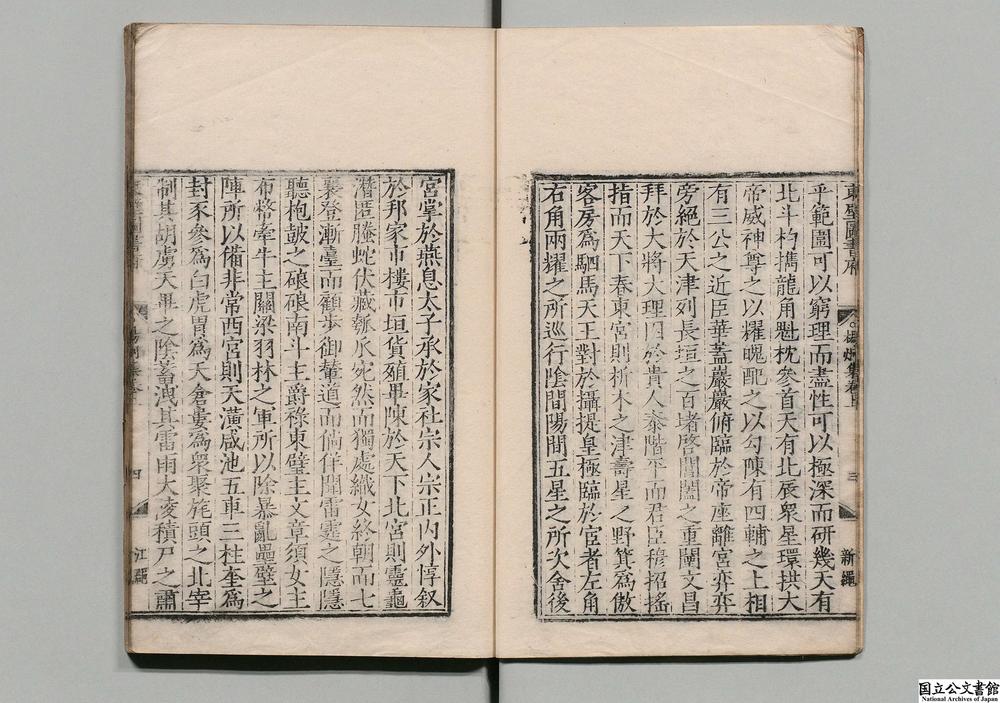 東壁圖書府
楊炯集卷上
三
新繩
乎範圍可以窮理而盡性可以極深而研幾天有
北斗杓攜龍角魁枕參首天有北辰衆星環拱大
帝威神尊之以耀魄配之以勾陳有四輔之上相
有三公之近臣華蓋巖巖俯臨於帝座離宮弈弈
旁絕於天津列長垣之百堵啓閶闔之重闈文昌
拜於大將大理囚於貴人泰階平而君臣穆招搖
指而天下春東宮則析木之津壽星之野箕為傲
客房為駟馬天王對於攝提皇極臨於宦者左角
右角兩耀之所巡行陰間陽間五星之所次舍後
宮掌於燕息太子承於家社宗人宗正内外惇叙
於邦家市樓市垣貨殖畢陳於天下北宮則靈龜
潛匿螣蛇伏藏瓠爪宛然而獨處織女終朝而七
襄登漸臺而顧步御輦道而倘佯聞雷霆之隱隱
聽枹鼓之硠硠南斗主爵祿東壁主文章須女主
布幣牽牛主關梁羽林之軍所以除暴亂壘壁之
陣所以備非常西宮則天潢咸池五車三柱奎為
封豕參為白虎胃為天倉婁為衆聚旄頭之北宰
制其胡虜天畢之陰蓄洩其雷雨大凌積尸之肅
四
国立公文書館
National Archives of Japan